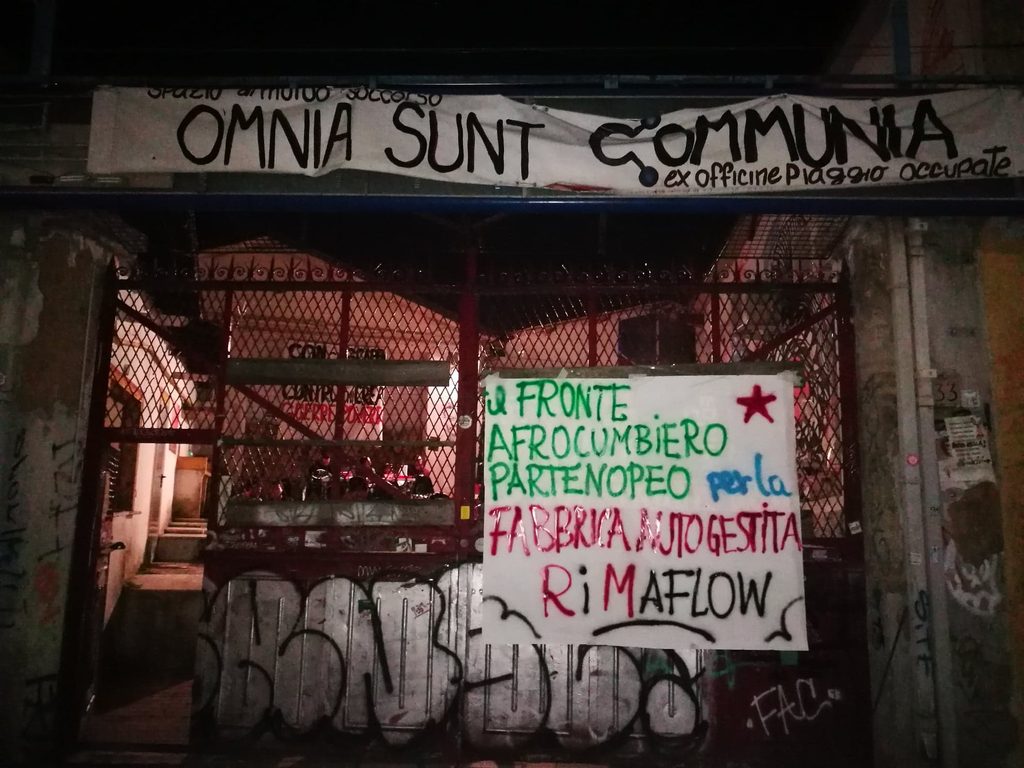 Spazio di mutuo soccorso
OMNIA SUNT COMMUNIA
ex officine Piaggio occupate
il FRONTE
AFROCUMBIERO
PARTENOPEO per la
FABBRICA AUTOGESTITA
RiMAFLOW
33
FAC